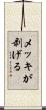 メッキが
剥げる